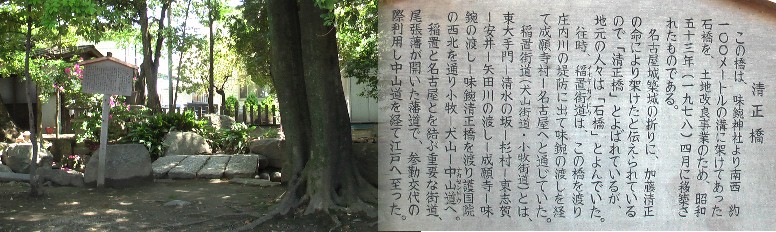 清正橋
この橋は、味鋺神社より南西 約
一〇〇メートルの溝に架けてあった
石橋を、土地改良事業のため、昭和
五十三年(一九七八)四月に移築さ
れたものである。
名古屋城築城の折りに、加藤清正
の命により架けたと伝えられている
ので「清正橋」とよばれているが、
地元の人々は「石橋」とよんでいた。
往時、稲置街道は、この橋を渡り
庄内川の堤防に出て味鋺の渡しを経
て成願寺村―名古屋へと通じていた。
稲置街道(犬山街道・小牧街道)とは、
東大手門―清水の坂、杉村―東志賀
―安井―矢田川の渡し―成願寺―味
鋺の渡し―味鋺清正橋を渡り護国院
の西北を通り小牧、犬山―中山道へ。
稲置と名古屋とを結ぶ重要な街道、
尾張藩が開いた藩道で、参勤交代の
際利用し中山道を経て江戸へ至った。